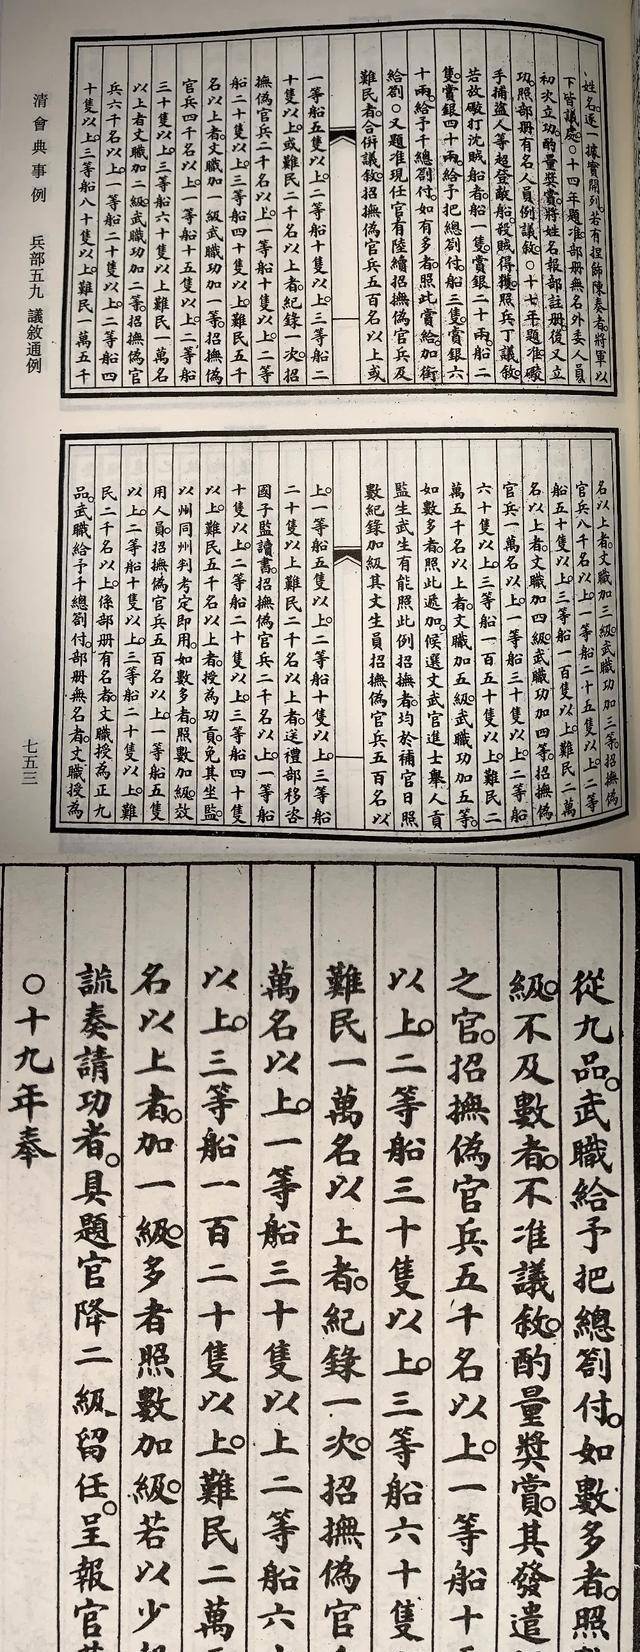 姓名逐一據實開列若有捏飾陳奏者將軍以
下皆議處○十四年題准部冊無名外委人員
初次立功酌量獎賞將姓名報部註冊後又立
功照部冊有名人員例議敘○十七年題准礮
手捕盜人等超登敵船殺賊得獲照兵丁議敘
若故礮打沈賊船者船一隻賞銀二十兩船二
隻賞銀四十兩給予把總劄付船三隻賞銀六
十兩給予千總劄付如有多者照此賞給加銜
給劄○又題准現任官有陸續招撫偽官兵及
難民者合併議敘招撫偽官兵五百名以上或
一等船五隻以上二等船十隻以上三等船二
十隻以上或難民二千名以上者紀錄一次招
撫偽官兵二千名以上一等船十隻以上二等
船二十隻以上三等船四十隻以上難民五千
名以上者文職加一級武職功加一等招撫偽
官兵四千名以上一等船十五隻以上二等船
三十隻以上三等船六十隻以上難民一萬名
以上者文職加二級武職功加二等招撫偽官
兵六千名以上一等船二十隻以上二等船四
十隻以上三等船八十隻以上難民一萬五千
清會典事例 兵部五九 議敘通例
名以上者文職加三級武職功加三等招撫偽
官兵八千名以上一等船二十五隻以上二等
船五十隻以上三等船一百隻以上難民二萬
名以上者文職加四級武職功加四等招撫偽
官兵一萬名以上一等船三十隻以上二等船
六十隻以上三等船一百五十隻以上難民二
萬五千名以上者文職加五級武職功加五等
如數多者照此遞加候選文武官進士舉人貢
監生武生有能照此例招撫者均於補官日照
數紀錄加級其文生員招撫偽官兵五百名以
上一等船五隻以上二等船十隻以上三等船
二十隻以上難民二千名以上者送禮部移咨
國子監讀書招撫偽官兵二千名以上一等船
十隻以上二等船二十隻以上三等船四十隻
以上難民五千名以上者授為功貢免其坐監
以州同州判考定即用如數多者照數加級效
用人員招撫偽官兵五百名以上一等船五隻
以上二等船十隻以上三等船二十隻以上難
民二千名以上係部冊有名者文職授為正九
品武職給予千總劄付部冊無名者文職授為
七五三
從九品武職給予把總劄付如數多者照
級不及數者不准議敘酌量獎賞其發遣
之官招撫偽官兵五千名以上一等船十
以上二等船三十隻以上三等船六十隻
難民一萬名以上者紀錄一次招撫偽官
萬名以上一等船三十隻以上二等船六
以上三等船一百二十隻以上難民二萬
名以上者加一級多者照數加級若以少
謊奏請功者具題官降二級留任呈報官
○十九年奉